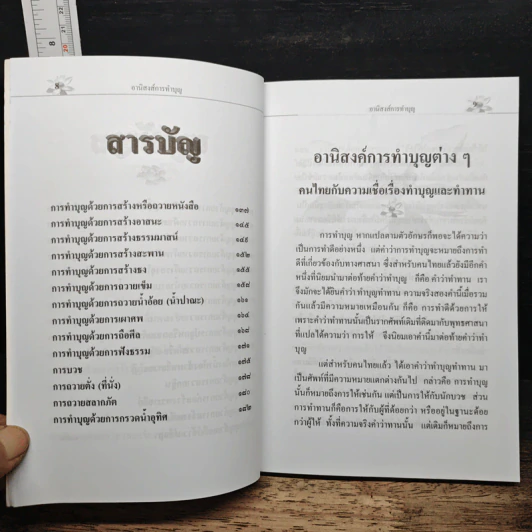 8
20
21
๘
อานิสงส์การทำบุญ
สารบัญ
การทำบุญด้วยการสร้างหรือถวายหนังสือ ๑๓๗
การทำบุญด้วยการสร้างอาสนะ ๑๔๕
การทำบุญด้วยการสร้างธรรมมาสน์ ๑๔๙
การทำบุญด้วยการสร้างสะพาน ๑๕๒
การทำบุญด้วยการสร้างธง ๑๕๕
การทำบุญด้วยการถวายเข็ม ๑๕๘
การทำบุญด้วยการถวายน้ำอ้อย (น้ำปานะ) ๑๖๐
การทำบุญด้วยการเผาศพ ๑๖๔
การทำบุญด้วยการถือศีล ๑๖๘
การทำบุญด้วยการฟังธรรม ๑๗๐
การบวช ๑๗๕
การถวายตั่ง (ที่นั่ง) ๑๗๘
การถวายสลากภัต ๑๘๐
การทำบุญด้วยการกรวดน้ำอุทิศ ๑๘๒
อานิสงส์การทำบุญ
อานิสงค์การทำบุญต่าง ๆ
คนไทยกับความเชื่อเรื่องทำบุญและทำทาน
การทำบุญ หากแปลตามตัวอักษรก็พอจะได้ความว่า
เป็นการทำดีอย่างหนึ่ง แต่คำว่าการทำบุญจะหมายถึงการทำ
ดีที่เกี่ยวข้องกับทางศาสนา ซึ่งสำหรับคนไทยแล้วยังมีอีกคำ
หนึ่งที่นิยมนำมาต่อท้ายคำว่าทำบุญ ก็คือ คำว่าทำทาน เรา
จึงมักจะได้ยินคำว่าทำบุญทำทาน ความจริงสองคำนี้เมื่อรวม
กันแล้วมีความหมายเหมือนกัน ก็คือ การทำดีด้วยการให้
เพราะคำว่าทำทานนั้นเป็นรากศัพท์เดิมที่ติดมากับพุทธศาสนา
ที่แปลได้ความว่า การให้ จึงนิยมเอาคำนี้มาต่อท้ายคำว่าทำ
บุญ
แต่สำหรับคนไทยแล้ว ได้เอาคำว่าทำบุญทำทาน มา
เป็นศัพท์ที่มีความหมายแตกต่างกันไป กล่าวคือ การทำบุญ
นั้นก็หมายถึงการให้เช่นกัน แต่เป็นการให้กับนักบวช ส่วน
การทำทานก็คือการให้กับผู้ที่ด้อยกว่า หรืออยู่ในฐานะด้อย
กว่าผู้ให้ ทั้งที่ความจริงคำว่าทานนั้น แต่เดิมก็หมายถึงการ